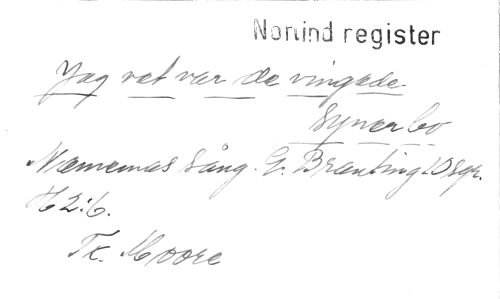 Norlind register
Jag vet var de vingade
syner bo
Nornornas sång. G. Branting: Dsgr.
H 2:6.
Tx. Moore